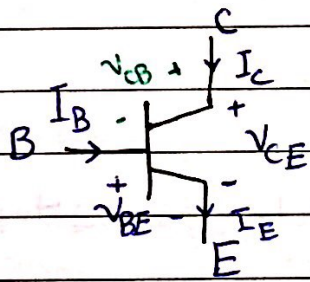 C
V_CB + I_C
I_B - +
B V_CE
+ -
V_BE - I_E
E